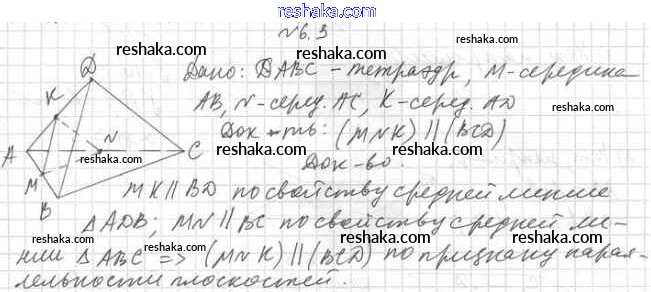 №6.3
Дано: DABC - тетраэдр, M - середина
AB, N - серед. AC, K - серед. AD
Док-ть: (MNK) || (BCD)
Док-во.
D
K
A
N
C
M
B
MK || BD по свойству средней линии
△ADB; MN || BC по свойству средней ли-
нии △ABC => (MNK) || (BCD) по признаку парал-
лельности плоскостей.
reshaka.com
reshaka.com
reshaka.com
reshaka.com
reshaka.com
reshaka.com
reshaka.com
reshaka.com
reshaka.com
reshaka.com
reshaka.com
reshaka.com